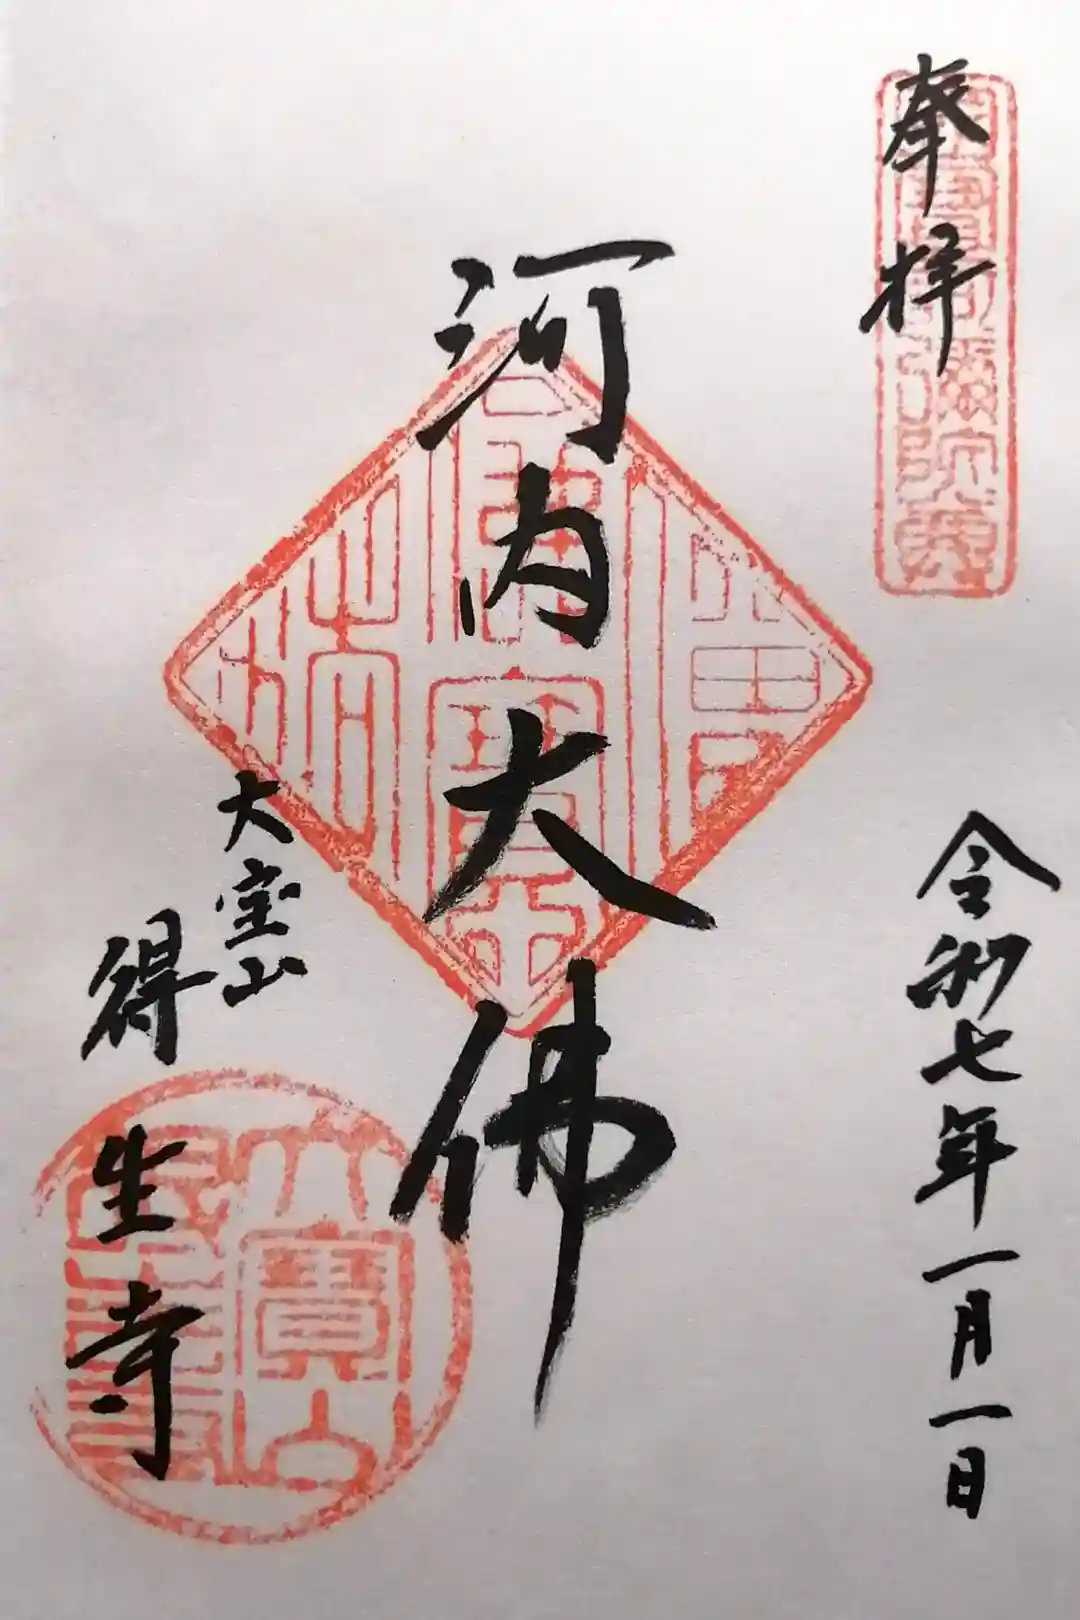 奉拝
令和七年一月一日
河内大佛
大宝山
得生寺